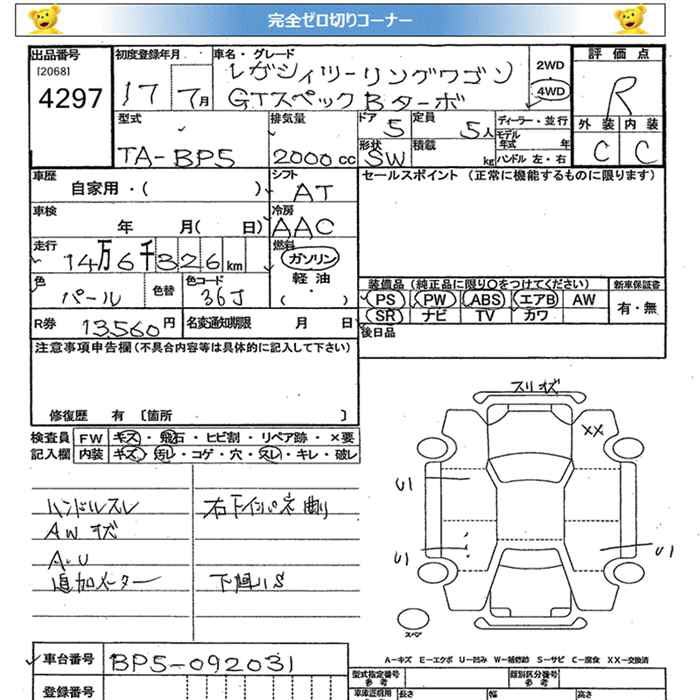 完全ゼロ切りコーナー
出品番号 初度登録年月 車名・グレード 評価点
[2068] 4297 17 7月 レガシィツーリングワゴン 2WD
GTスペックBターボ 4WD R
型式 排気量 ドア 5 定員 5人 ディーラー・並行 外装 内装
モデル年式 年
TA-BP5 2000cc 形状 SW 積載 kg ハンドル 左・右 C C
車歴 自家用・( ) シフト AT セールスポイント (正常に機能するものに限ります)
車検 年 月( 日) 冷房 AAC
走行 14万6千326km 燃料 ガソリン
軽油
( ・ )
色 パール 色替 色コード 36J
装備品(純正品に限り○をつけてください) 新車保証書
PS PW ABS エアB AW 有・無
SR ナビ TV カワ
R券 13560円 名変通知期限 月 日 後日品
注意事項申告欄(不具合内容等は具体的に記入して下さい)
修復歴 有 [箇所 ]
検査員 FW キズ・飛石・ヒビ割・リペア跡・×要
記入欄 内装 キズ・汚レ・コゲ・穴・スレ・キレ・破レ
ハンドルスレ
AWキズ
A・U
追加メーター
右下インパネ
スリキズ
XX
U1
U1
U1
スペア
A-キズ E-エクボ U-凹み W-補修跡 S-サビ C-腐食 XX-交換済
車台番号 BP5-092031
登録番号
型式指定番号 参考 類別区分番号 参考
車庫証明用 参考 長さ 幅 高さ